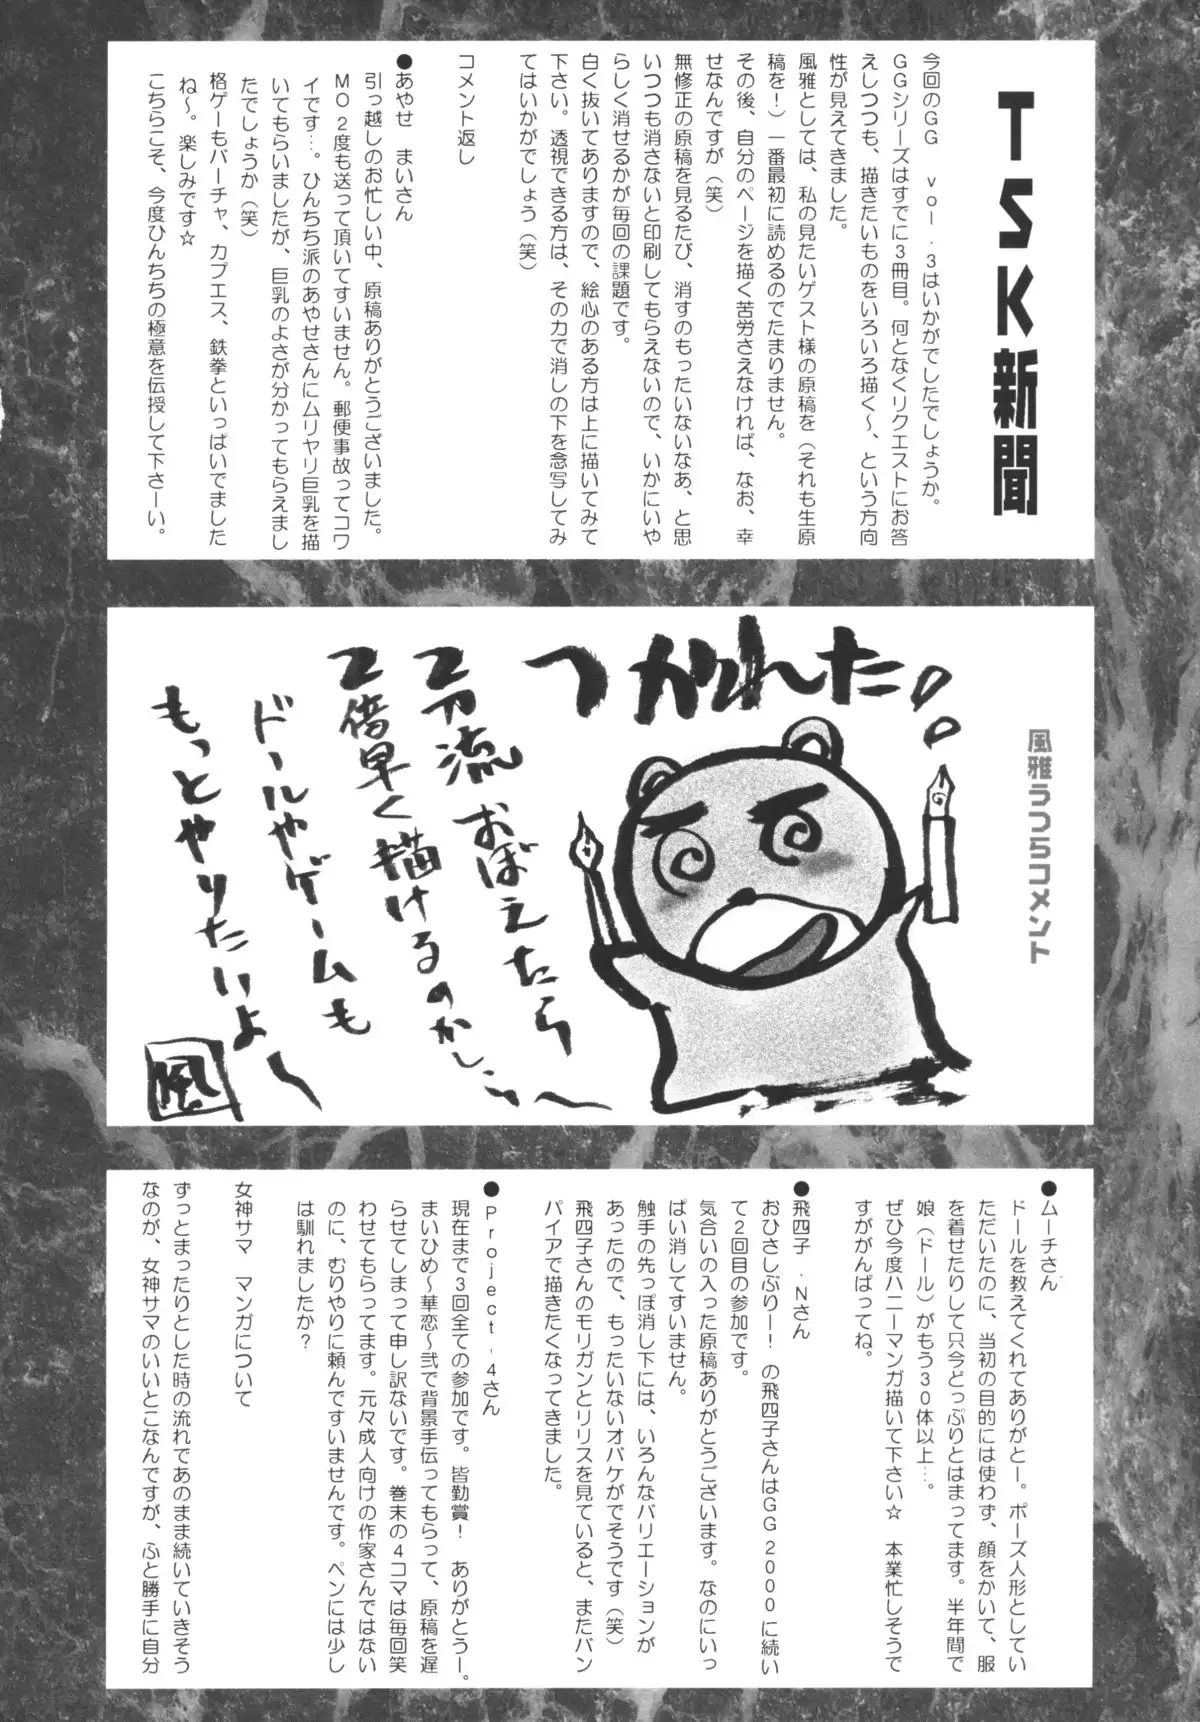 TSK新聞
今回のGG　vol.3はいかがでしたでしょうか。
GGシリーズはすでに3冊目。何となくリクエストにお答
えしつつも、描きたいものをいろいろ描く〜、という方向
性が見えてきました。
風雅としては、私の見たいゲスト様の原稿を（それも生原
稿を！）一番最初に読めるのでたまりません。
その後、自分のページを描く苦労さえなければ、なお、幸
せなんですが（笑）
無修正の原稿を見るたび、消すのもったいないなあ、と思
いつつも消さないと印刷してもらえないので、いかにいや
らしく消せるかが毎回の課題です。
白く抜いてありますので、絵心のある方は上に描いてみて
下さい。透視できる方は、その力で消しの下を念写してみ
てはいかがでしょう（笑）
コメント返し
●あやせ　まいさん
引っ越しのお忙しい中、原稿ありがとうございました。
MO2度も送って頂いてすいません。郵便事故ってコワ
イです…。ひんちち派のあやせさんにムリヤリ巨乳を描
いてもらいましたが、巨乳のよさが分かってもらえまし
たでしょうか（笑）
格ゲーもバーチャ、カプエス、鉄拳といっぱいでました
ね〜。楽しみです☆
こちらこそ、今度ひんちちの極意を伝授して下さーい。
風雅うつらコメント
つかれた。
2刀流おぼえたら
2倍早く描けるのかしら〜
ドールやゲームも
もっとやりたいよ〜
風
●ムーチさん
ドールを教えてくれてありがとー。ポーズ人形としてい
ただいたのに、当初の目的には使わず、顔をかいて、服
を着せたりして只今どっぷりとはまってます。半年間で
娘（ドール）がもう30体以上…。
ぜひ今度ハニーマンガ描いて下さい☆　本業忙しそうで
すががんばってね。
●飛四子．Nさん
おひさしぶりー！の飛四子さんはGG2000に続い
て2回目の参加です。
気合いの入った原稿ありがとうございます。なのにいっ
ぱい消してすいません。
触手の先っぽ消し下には、いろんなバリエーションが
あったので、もったいないオバケがでそうです（笑）
飛四子さんのモリガンとリリスを見ていると、またバン
パイアで描きたくなってきました。
●Project-4さん
現在まで3回全ての参加です。皆勤賞！　ありがとうー。
まいひめ〜華恋〜弐で背景手伝ってもらって、原稿を遅
らせてしまって申し訳ないです。巻末の4コマは毎回笑
わせてもらってます。元々成人向けの作家さんではない
のに、むりやりに頼んですいませんです。ペンには少し
は馴れましたか？
女神サマ　マンガについて
ずっとまったりとした時の流れであのまま続いていきそう
なのが、女神サマのいいとこなんですが、ふと勝手に自分